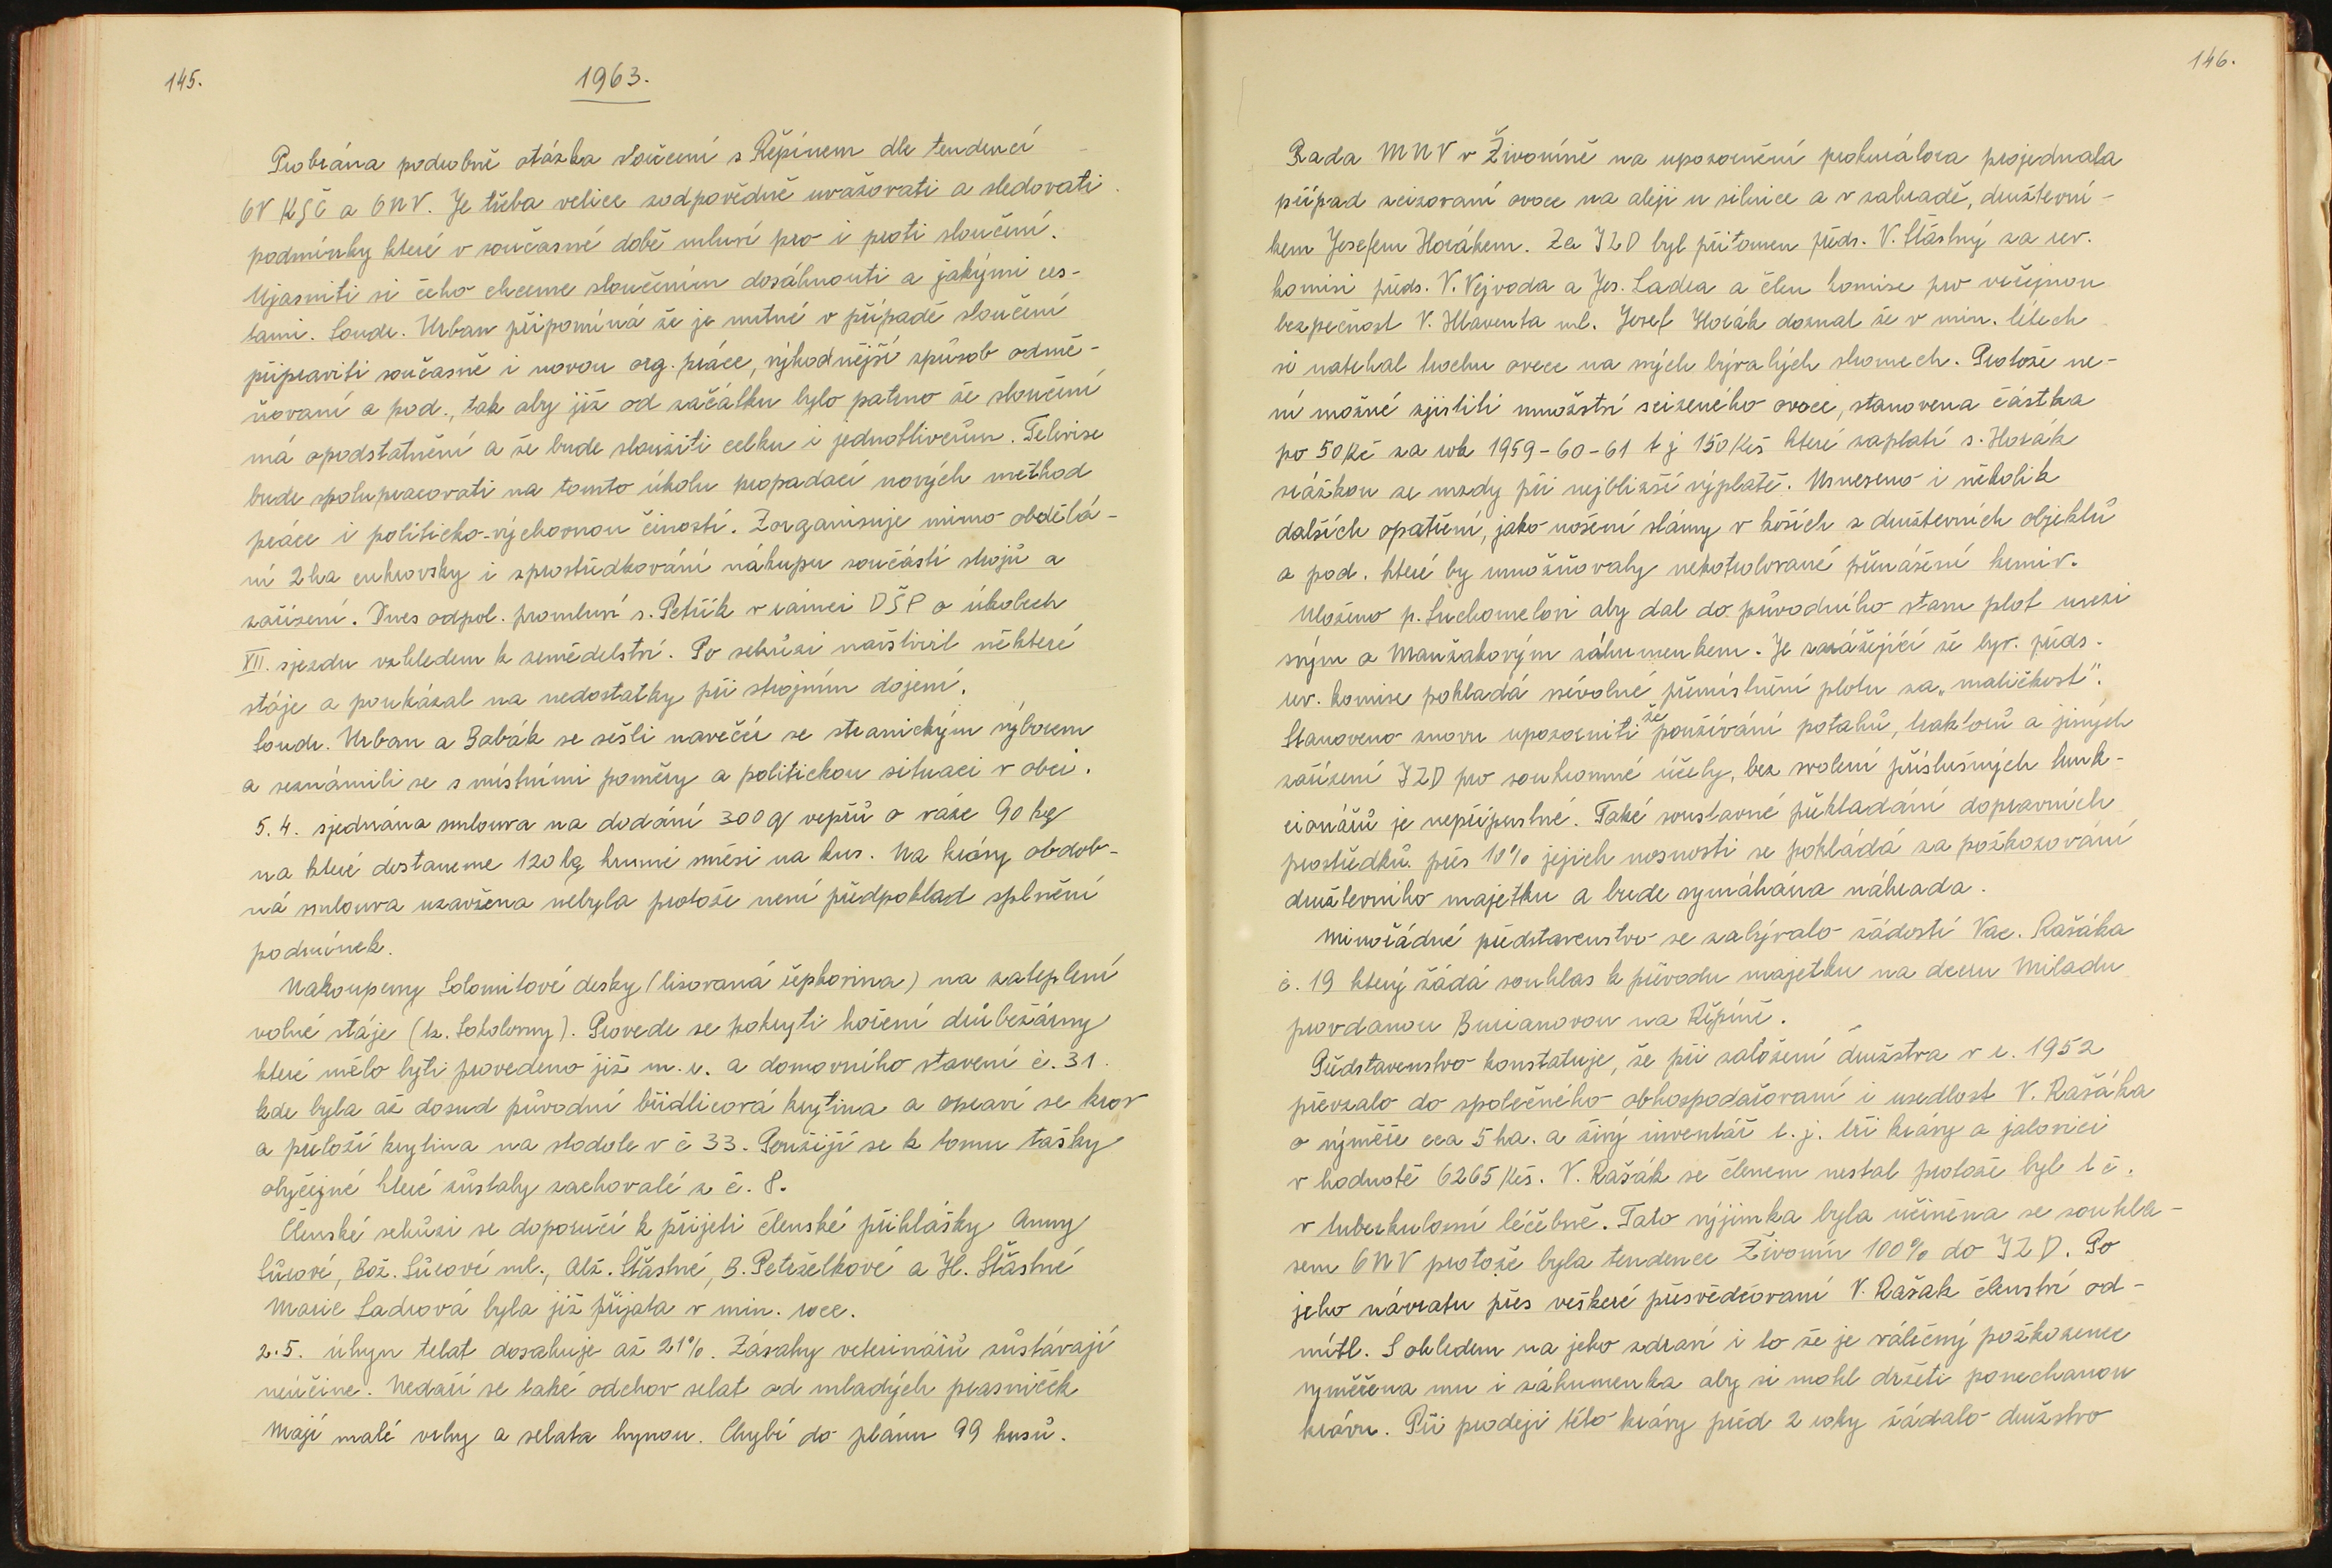 145.
1963.
Probrána podrobně otázka sloučení s Řepínem dle tendencí
OV KSČ a ONV. Je třeba velice zodpovědně uvažovati a sledovati
podmínky které v současné době mluví pro i proti sloučení.
Ujasniti si čeho chceme sloučením dosáhnouti a jakými ces-
tami. Soudr. Urban připomíná že je nutné v případě sloučení
připraviti současně i novou org. práce, výhodnější způsob odmě-
ňovaní a pod., tak aby již od začátku bylo patrno že sloučení
má opodstatnění a že bude sloužiti celku i jednotlivcům. Televise
bude spolupracovati na tomto úkolu propadací nových method
práce i politicko-výchovnou činností. Zorganisuje mimo obdělá-
ní 2 ha cukrovky i zprostředkování nákupu součástí strojů a
zařízení. Dnes odpol. promluví s. Petřík v rámci DŠP o úkolech
XII. sjezdu vzhledem k zemědelství. Po schůzi navštívil některé
stáje a poukázal na nedostatky při strojním dojení.
Soudr. Urban a Babák se sešli navečer se stranickým výborem
a seznámili se s místními poměry a politickou situaci v obci.
5.4. sjednána smlouva na dodání 300 q vepřů o váze 90 kg
na které dostaneme 120 kg krumé směsi na kus. Na krávy obdob-
ná smlouva uzavřena nebyla protože není předpoklad splnění
podmínek.
Nakoupeny Solomitové desky (lisovaná čepkovina) na zateplení
volné stáje (tz. Sokolovny). Provede se pokrytí hoření drůbežárny
které mělo býti provedeno již m. r. a domovního stavení č. 31.
kde byla až dosud původní břidlicová krytina a opraví se krov
a přeloží krytina na stodole v č 33. Použijí se k tomu tašky
obyčejné které zůstaly zachovalé z č. 8.
Členské schůzi se doporučí k přijeti členské přihlášky Anny
Sůrové, Bož. Sůrové ml., Alž. Šťastné, B. Petrželkové a Hl. Šťastné
Marie Ladrová byla již přijata v min. roce.
2.5. úhyn telat dosahuje až 21%. Zásahy veterinářů zůstávají
neúčine. Nedaří se také odchov selat od mladých prasniček
Mají malé vrhy a selata hynou. Chybí do plánu 99 kusů.
146.
Rada MNV v Živoníně na upozornění prokurátora projednala
případ zcizovaní ovoce na aleji u silnice a v zahradě, družstevní-
kem Josefem Horákem. Za JZD byl přítomen předs. V. Šťástný za rev.
komisi předs. V. Vejvoda a Jos. Ladra a člen komise pro veřejnou
bezpečnost V. Hlaventa ml. Josef Horák doznal že v min. létech
si natrhal trochu ovoce na svých bývalých stromech. Protože ne-
ní možné zjistiti množství scizeného ovoce, stanovena částka
po 50 Kč za rok 1959-60-61 t j 150 Kčs které zaplatí s. Horák
srážkou ze mzdy při nejbližší výplatě. Usneseno i několik
dalších opatření, jako nošení slámy v koších z družstevních objektů
a pod. které by umožňovaly nekotrolované přenášení krmiv.
Uloženo p. Suchomelovi aby dal do původního stavu plot mezi
svým a Maužakovým záhumenkem. Je zarážející že býv. předs.
rev. komise pokladá svévolné přemístnění plotu za „maličkost".
Stanoveno znovu upozorniti že používání potahů, traktorů a jiných
zařízení JZD pro soukromné účely, bez svolení příslušných funk-
cionářů je nepřípustné. Také soustavné překladání dopravních
prostředků přes 10% jejich nosnosti se pokládá za poškozování
družstevního majetku a bude vymáhána náhrada.
Mimořádné představenstvo se zabývalo žádostí Vac. Rašáka
č. 19 který žádá souhlas k převodu majetku na dceru Miladu
provdanou Burianovou na Řepíně.
Představenstvo konstatuje, že při založení družstva v r. 1952
převzalo do společného obhospodařovaní i usedlost V. Rašáka
o výměře cca 5 ha. a živý inventář t. j. tři krávy a jalovici
v hodnotě 6265 Kčs. V. Rašák se členem nestal protože byl t č.
v tuberkulosní léčebně. Tato výjimka byla učiněna se souhla-
sem ONV protože byla tendence Živonín 100% do JZD. Po
jeho návratu přes veškeré přesvědčovaní V. Rašak členství od-
mítl. S ohledem na jeho zdraví i to že je válečný poškozenec
vyměřena mu i záhumenka aby si mohl držeti ponechanou
krávu. Při prodeji této krávy před 2 roky žádalo družstvo